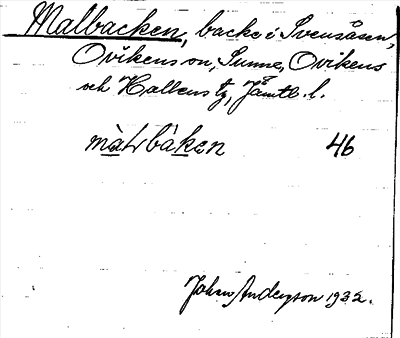 Malbacken, backe i Svensåsen,
Ovikens sn, Sunne, Ovikens
och Hallens tg, Jämtl. l.
màLrbàken 46
Johan Anderzson 1932.